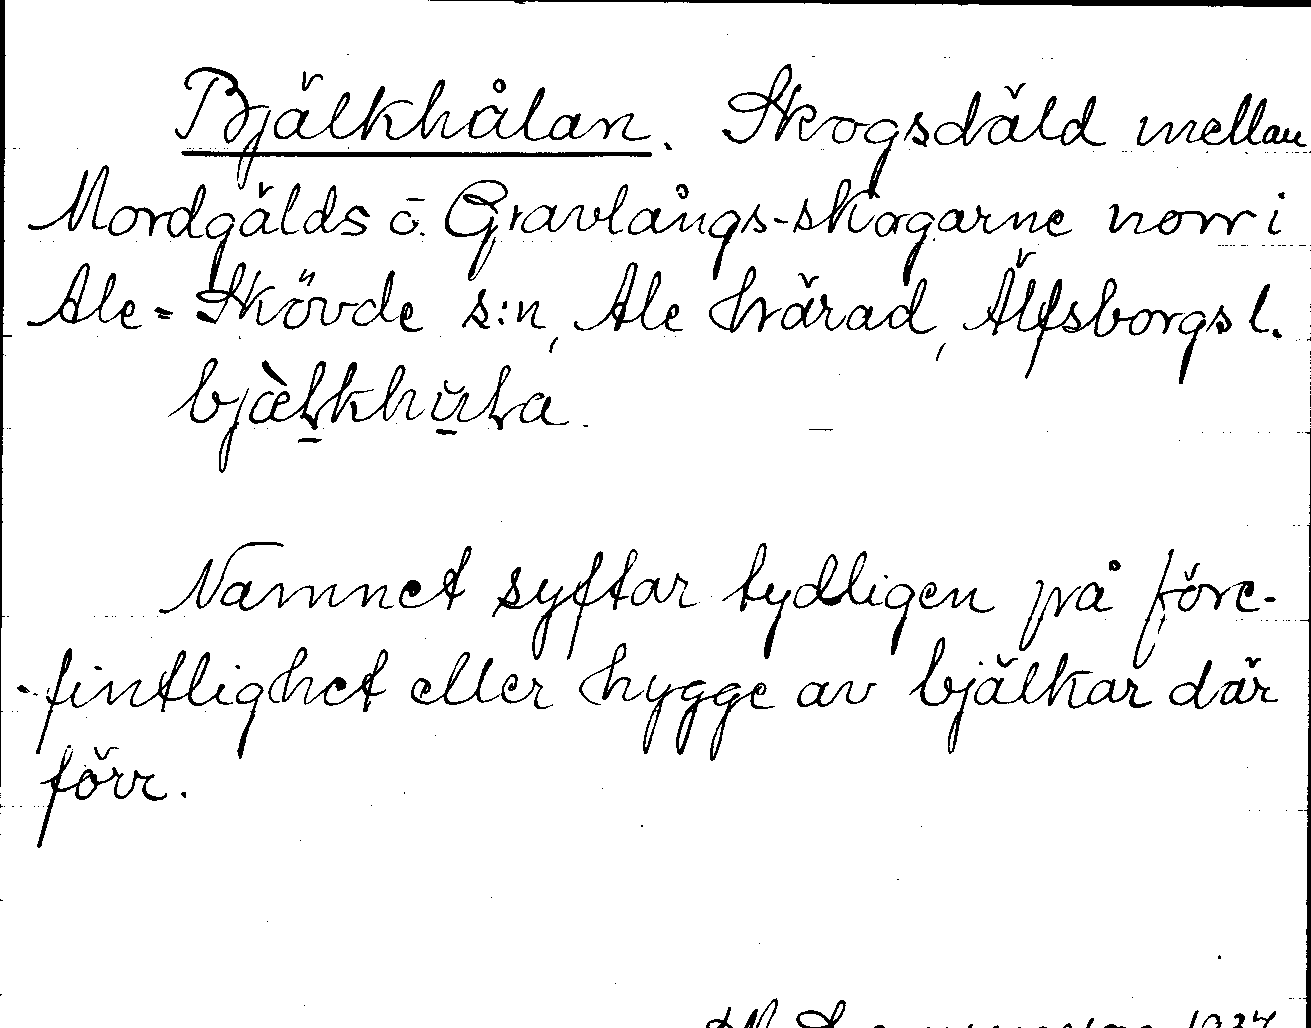 Bjälkhålan. Skogsdäld mellan
Mordgälds o. Gravlångs-skogarne norr i
Ale-Skövde s:n, Ale härad, Älfsborgs l.
bjæ̀lkhu̇la.
Namnet syftar tydligen på före-
-fintlighet eller hygge av bjälkar där
förr.